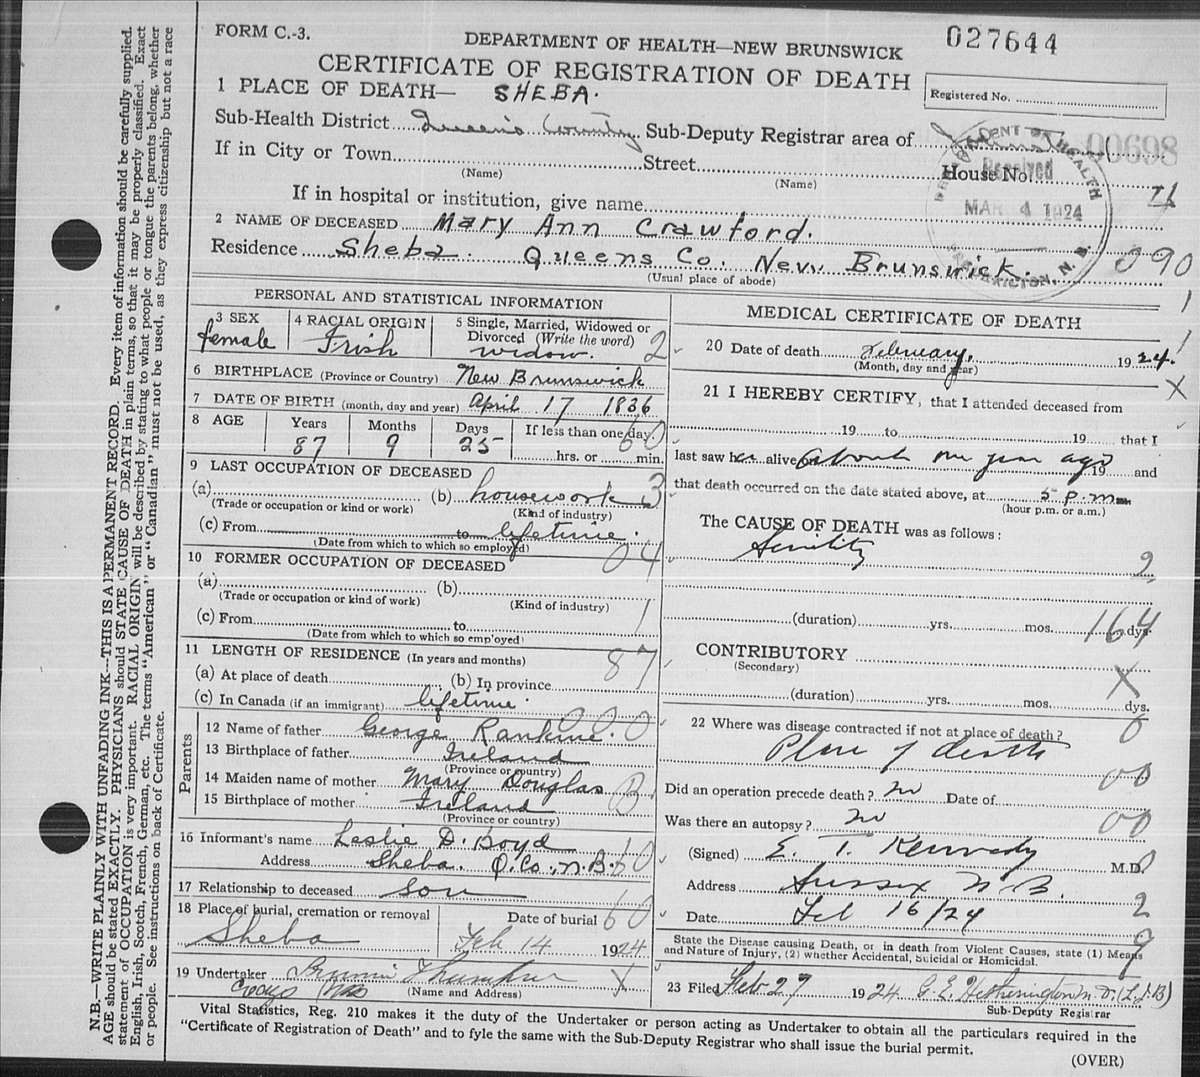 FORM C.-3.
027644
DEPARTMENT OF HEALTH—NEW BRUNSWICK
CERTIFICATE OF REGISTRATION OF DEATH
Registered No.
1 PLACE OF DEATH— SHEBA.
Sub-Health District Queen's County Sub-Deputy Registrar area of
00698
If in City or Town Street House No.
(Name) (Name)
DEPARTMENT OF HEALTH
Received
MAR 4 1924
FREDERICTON, N. B.
If in hospital or institution, give name
4
2 NAME OF DECEASED Mary Ann Crawford.
Residence Sheba. Queens Co. New Brunswick.
090
(Usual place of abode)
PERSONAL AND STATISTICAL INFORMATION
3 SEX 4 RACIAL ORIGIN 5 Single, Married, Widowed or
Divorced (Write the word)
female Irish widow. 2
6 BIRTHPLACE (Province or Country) New Brunswick
7 DATE OF BIRTH (month, day and year) April 17 1836
8 AGE Years Months Days If less than one day.
60
87 9 25 hrs. or min.
9 LAST OCCUPATION OF DECEASED
(a) (b) housework 3
(Trade or occupation or kind or work) (Kind of industry)
(c) From to lifetime.
(Date from which to which so employed)
04
10 FORMER OCCUPATION OF DECEASED
(a) (b)
(Trade or occupation or kind of work) (Kind of industry)
(c) From to 1
(Date from which to which so emp'oyed)
11 LENGTH OF RESIDENCE (In years and months) 87
(a) At place of death (b) In province
(c) In Canada (if an immigrant) lifetime.
000
Parents
12 Name of father George Rankine.
13 Birthplace of father Ireland
(Province or country)
14 Maiden name of mother Mary Douglas B
15 Birthplace of mother Ireland
(Province or country)
16 Informant's name Leslie D. Boyd
Address Sheba. Q. Co., N.B. 60
17 Relationship to deceased Son
18 Place of burial, cremation or removal Date of burial 60
Sheba Feb 14 1924
19 Undertaker
(Name and Address) X
MEDICAL CERTIFICATE OF DEATH
1
20 Date of death February, 1924.
(Month, day and year)
1
X
21 I HEREBY CERTIFY, that I attended deceased from
19 to 19 that I
last saw her alive about one year ago 19 and
that death occurred on the date stated above, at 5 p.m.
(hour p.m. or a.m.)
The CAUSE OF DEATH was as follows:
Senility 2
(duration) yrs. mos. dys.
164
CONTRIBUTORY
(Secondary)
X
(duration) yrs. mos. dys.
22 Where was disease contracted if not at place of death? 0
Place of death
00
Did an operation precede death? no Date of
Was there an autopsy? no 00
(Signed) E. T. Kennedy M.D.
Address Sussex N.B. 2
Date Feb 16/24
9
State the Disease causing Death, or, in death from Violent Causes, state (1) Means
and Nature of Injury, (2) whether Accidental, Suicidal or Homicidal.
23 Filed Feb 27 1924 G. E. Hetherington M.D. (L.J.B)
Sub-Deputy Registrar
Vital Statistics, Reg. 210 makes it the duty of the Undertaker or person acting as Undertaker to obtain all the particulars required in the
"Certificate of Registration of Death" and to fyle the same with the Sub-Deputy Registrar who shall issue the burial permit.
(OVER)
N.B.—WRITE PLAINLY WITH UNFADING INK—THIS IS A PERMANENT RECORD. Every item of information should be carefully supplied.
AGE should be stated EXACTLY. PHYSICIANS should STATE CAUSE OF DEATH in plain terms, so that it may be properly classified. Exact
statement of OCCUPATION is very important. RACIAL ORIGIN will be described by stating to what people or tongue the parents belong, whether
English, Irish, Scotch, French, German, etc. The terms "American" or "Canadian" must not be used, as they express citizenship but not a race
or people. See instructions on back of Certificate.